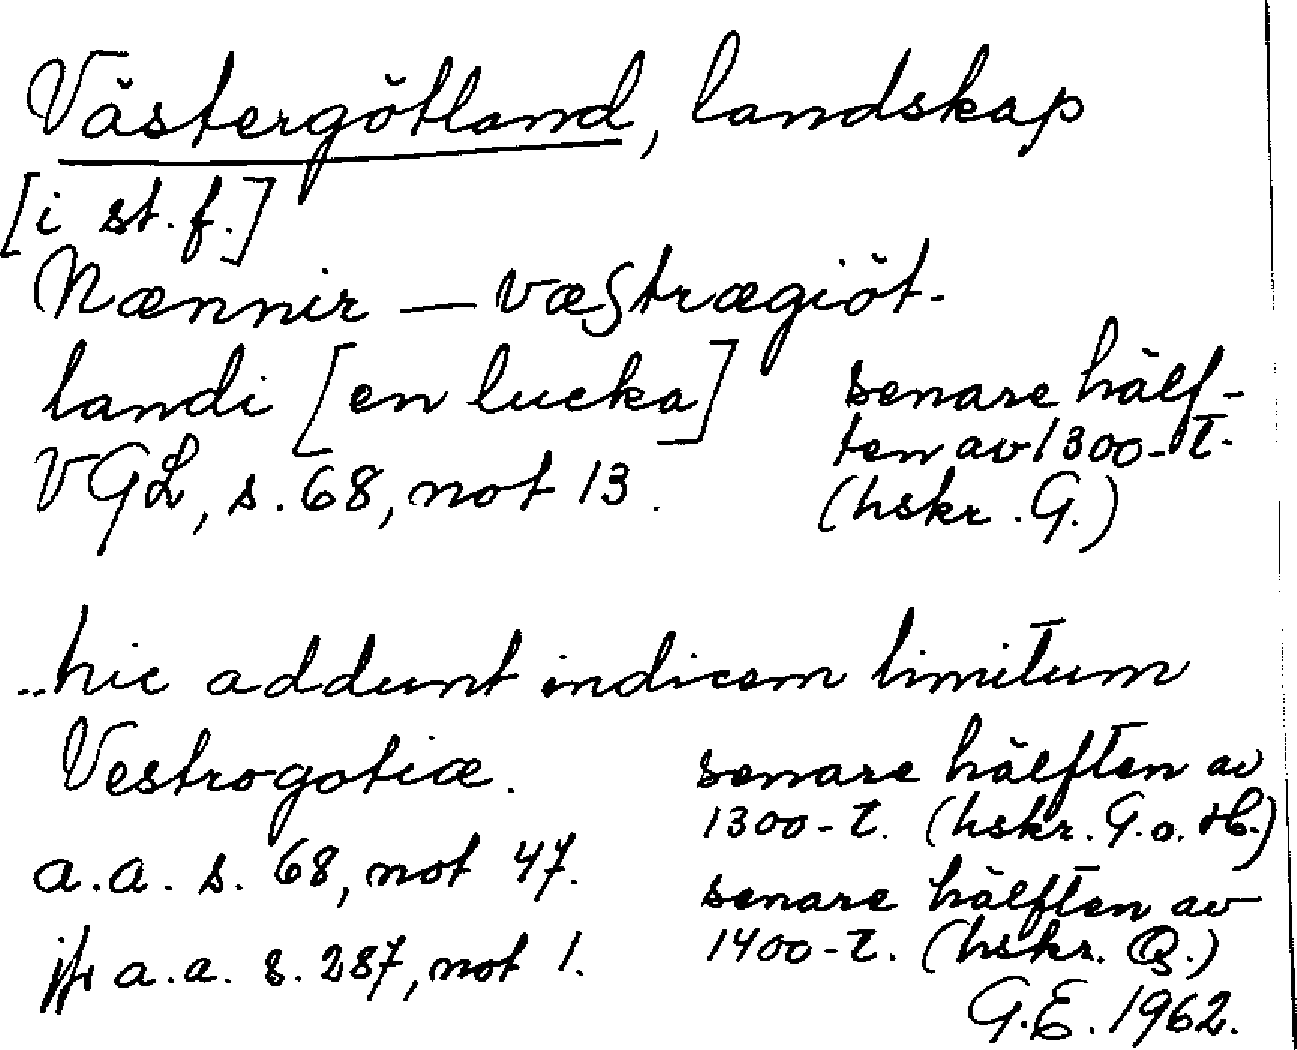 Västergötland, landskap
[i st.f.]
Nænnir — væstrægiöt-
landi [en lucka] senare hälf-
ten av 1300-t.
VGL, s. 68, not 13. (hskr. G.)
..hic addunt indicem limitum
Vestrogotiæ. senare hälften av
1300-t. (hskr. G. o. H.)
a.a. s. 68, not 47. senare hälften av
jfr a.a. s. 287, not 1. 1400-t. (hskr. Q.)
G.E. 1962.